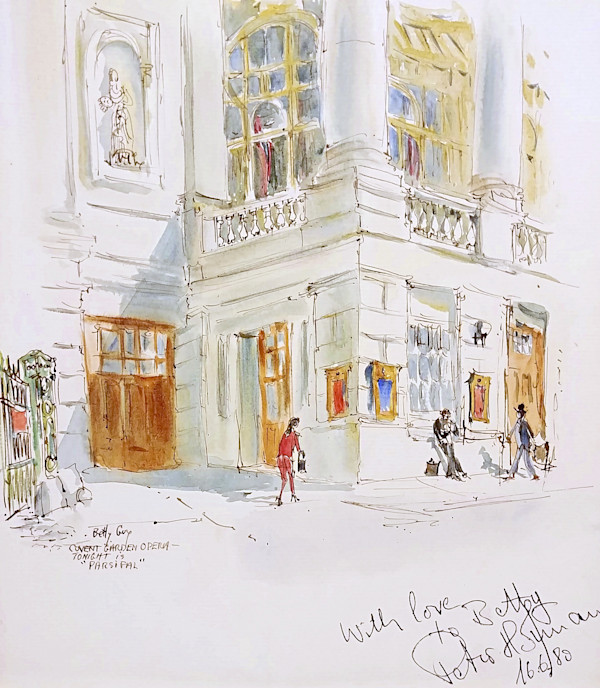 Betty Guy
COVENT GARDEN OPERA—
TONIGHT IS
"PARSIPAL"
With love
to Betty
Peter Hofmann
16.6/80